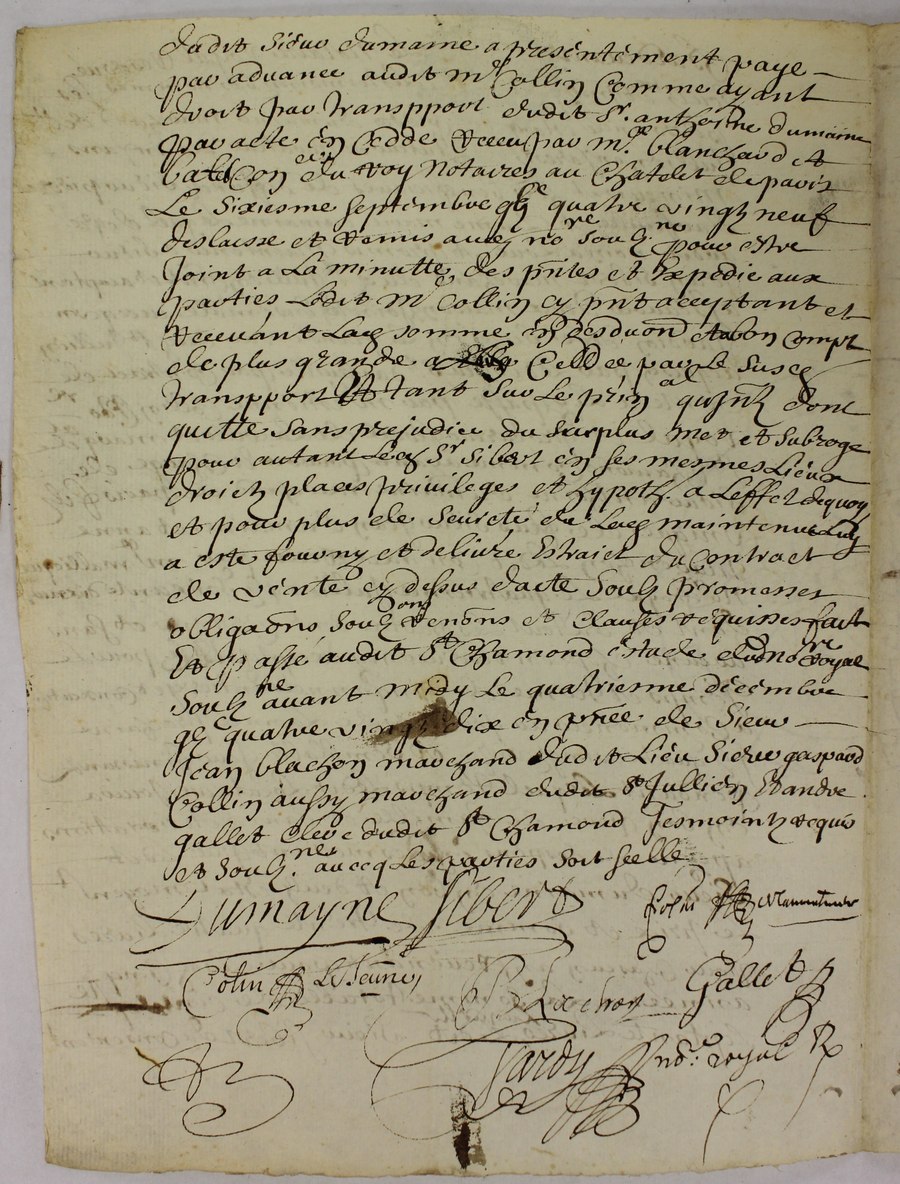 dudit sieur dumaine a presentement paye
par advance audit mr Collin Comme ayant
droit par transpport dudit sr. anthoine dumaine
par acte en Cedde receu par mr. blanchard et
du roy Notaires au Chatelet de paris
Le sixiesme septembre gbc quatre vingtz neuf
deslaissé et remis audz no.re soubz.né pour estre
Joint a La minutte des pntes et Expedie aux
parties Ledit mr Collin cy pnt acceptant et
recevant Lad somme en desduon et a bon compt
de plus grande a Ceddee par Le susd
transpport Et tant sur Le prin.al donc
quitte sans prejudice du surplus met et subroge
pour autant Led sr sibert en ses mesmes Lieux
droictz places privileges et hypoth. a L'effet dequoy
et pour plus de seureté du Lad maintenue Luy
a esté fourny et delivré Extraict du Contract
de vente cy dessus datte soubz promesses
obligaons soubz renons et Clauses requises fait
Et passé audit st Chamond estude dud no.re royal
soubz.né avant midy Le quatriesme decembre
gbc quatre vingtz dix en pnce de sieur
Jean blachon marchand dudit Lieu sieur gaspard
Collin aussy marchand dudit st Jullien Et andré
gallet clerc dudit st Chamond Tesmointz requis
et soubz.nés avecq Les parties soit scellé
Dumayne Sibert Colin
Colin Le Jeune Blachon Gallet
Jardy no.re royal R